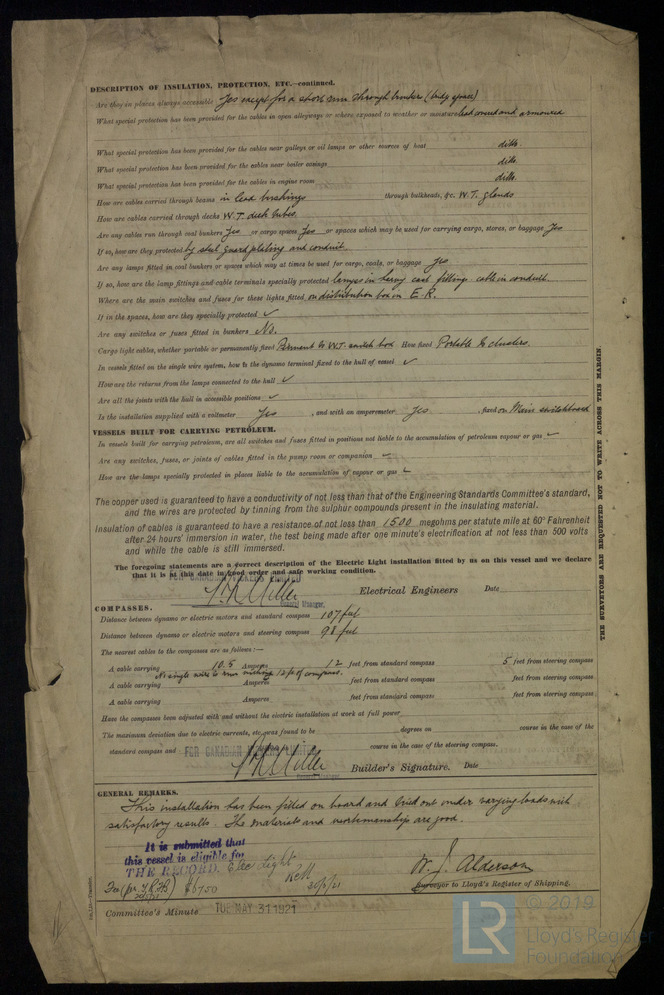 DESCRIPTION OF INSULATION, PROTECTION, ETC.—continued.
Are they in places always accessible Yes except for a short run through bunker (tidy space)
What special protection has been provided for the cables in open alleyways or where exposed to weather or moisture lead covered and armoured
What special protection has been provided for the cables near galleys or oil lamps or other sources of heat ditto.
What special protection has been provided for the cables near boiler casings ditto.
What special protection has been provided for the cables in engine room ditto.
How are cables carried through beams in lead bushings through bulkheads, &c. W.T. glands
How are cables carried through decks W.T. deck tubes.
Are any cables run through coal bunkers Yes or cargo spaces Yes or spaces which may be used for carrying cargo, stores, or baggage Yes
If so, how are they protected by steel guard plating and conduit.
Are any lamps fitted in coal bunkers or spaces which may at times be used for cargo, coals, or baggage Yes
If so, how are the lamp fittings and cable terminals specially protected lamps in heavy cast fittings. cable in conduit.
Where are the main switches and fuses for these lights fitted on distribution box in E.R.
If in the spaces, how are they specially protected ✓
Are any switches or fuses fitted in bunkers No.
Cargo light cables, whether portable or permanently fixed Perment to W.T. switch box How fixed Portable to clusters.
In vessels fitted on the single wire system, how is the dynamo terminal fixed to the hull of vessel ✓
How are the returns from the lamps connected to the hull ✓
Are all the joints with the hull in accessible positions ✓
Is the installation supplied with a voltmeter Yes , and with an amperemeter Yes , fixed on Main switchboard
VESSELS BUILT FOR CARRYING PETROLEUM.
In vessels built for carrying petroleum, are all switches and fuses fitted in positions not liable to the accumulation of petroleum vapour or gas ✓
Are any switches, fuses, or joints of cables fitted in the pump room or companion ✓
How are the lamps specially protected in places liable to the accumulation of vapour or gas ✓
The copper used is guaranteed to have a conductivity of not less than that of the Engineering Standards Committee's standard,
and the wires are protected by tinning from the sulphur compounds present in the insulating material.
Insulation of cables is guaranteed to have a resistance of not less than 1500 megohms per statute mile at 60° Fahrenheit
after 24 hours' immersion in water, the test being made after one minute's electrification at not less than 500 volts
and while the cable is still immersed.
The foregoing statements are a correct description of the Electric Light installation fitted by us on this vessel and we declare
that it is at this date in good order and safe working condition.
FOR CANADIAN VICKERS LIMITED
Miller Electrical Engineers Date
General Manager.
COMPASSES.
Distance between dynamo or electric motors and standard compass 107 feet
Distance between dynamo or electric motors and steering compass 98 feet
The nearest cables to the compasses are as follows:—
A cable carrying 10.5 Amperes 12 feet from standard compass 5 feet from steering compass
No single wire to run within 12 ft of compass.
A cable carrying Amperes feet from standard compass feet from steering compass
A cable carrying Amperes feet from standard compass feet from steering compass
Have the compasses been adjusted with and without the electric installation at work at full power
The maximum deviation due to electric currents, etc., was found to be degrees on course in the case of the
standard compass and course in the case of the steering compass.
FOR CANADIAN VICKERS LIMITED
Miller Builder's Signature. Date
General Manager
GENERAL REMARKS.
This installation has been fitted on board and tried out under varying loads with
satisfactory results. The materials and workmanship are good.
It is submitted that
this vessel is eligible for
THE RECORD. Elec Light
30/5/21
$67.50
W. J. Alderson
Surveyor to Lloyd's Register of Shipping.
Committee's Minute TUE MAY 31 1921
THE SURVEYORS ARE REQUESTED NOT TO WRITE ACROSS THIS MARGIN.
LR
© 2019
Lloyd's Register
Foundation